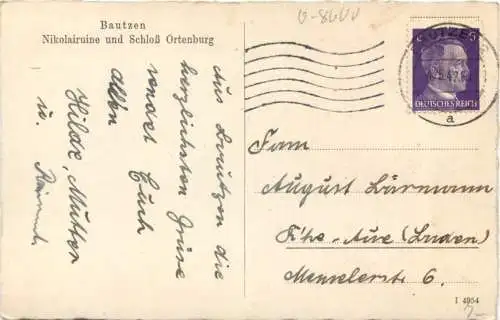 Bautzen
Nikolairuine und Schloß Ortenburg
Aus Bautzen die
herzlichsten Grüße
sendet Euch
allen
Hilde, Mutter
u.
6
DEUTSCHES REICH
a
Fam
August Bärmann
K'he-Aue (Baden)
6.
I 4954